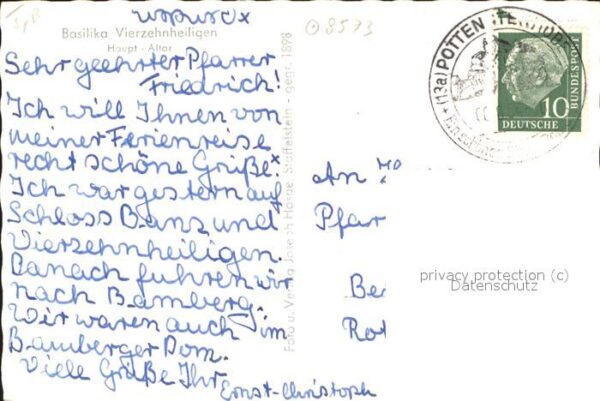 xOsnsdn
Basilika Vierzehnheiligen
Haupt-Altar
8573
Sehr geehrter Pfarrer
Friedrich!
Ich will Ihnen von
meiner Ferienreise
recht schöne Grüße.x
Ich war gestern auf
Schloss Banz und
Vierzehnheiligen.
Danach fuhren wir
nach Bamberg.
Wir waren auch im
Bamberger Dom.
Viele Grüße Ihr
Ernst-Christoph
Foto u. Verlag Josef H Staffelstein - gegr. 1898
(13a) POTTEN
10
DEUTSCHE
BUNDESPOST
An
Pfar
Be
Ro
privacy protection (c)
Datenschutz